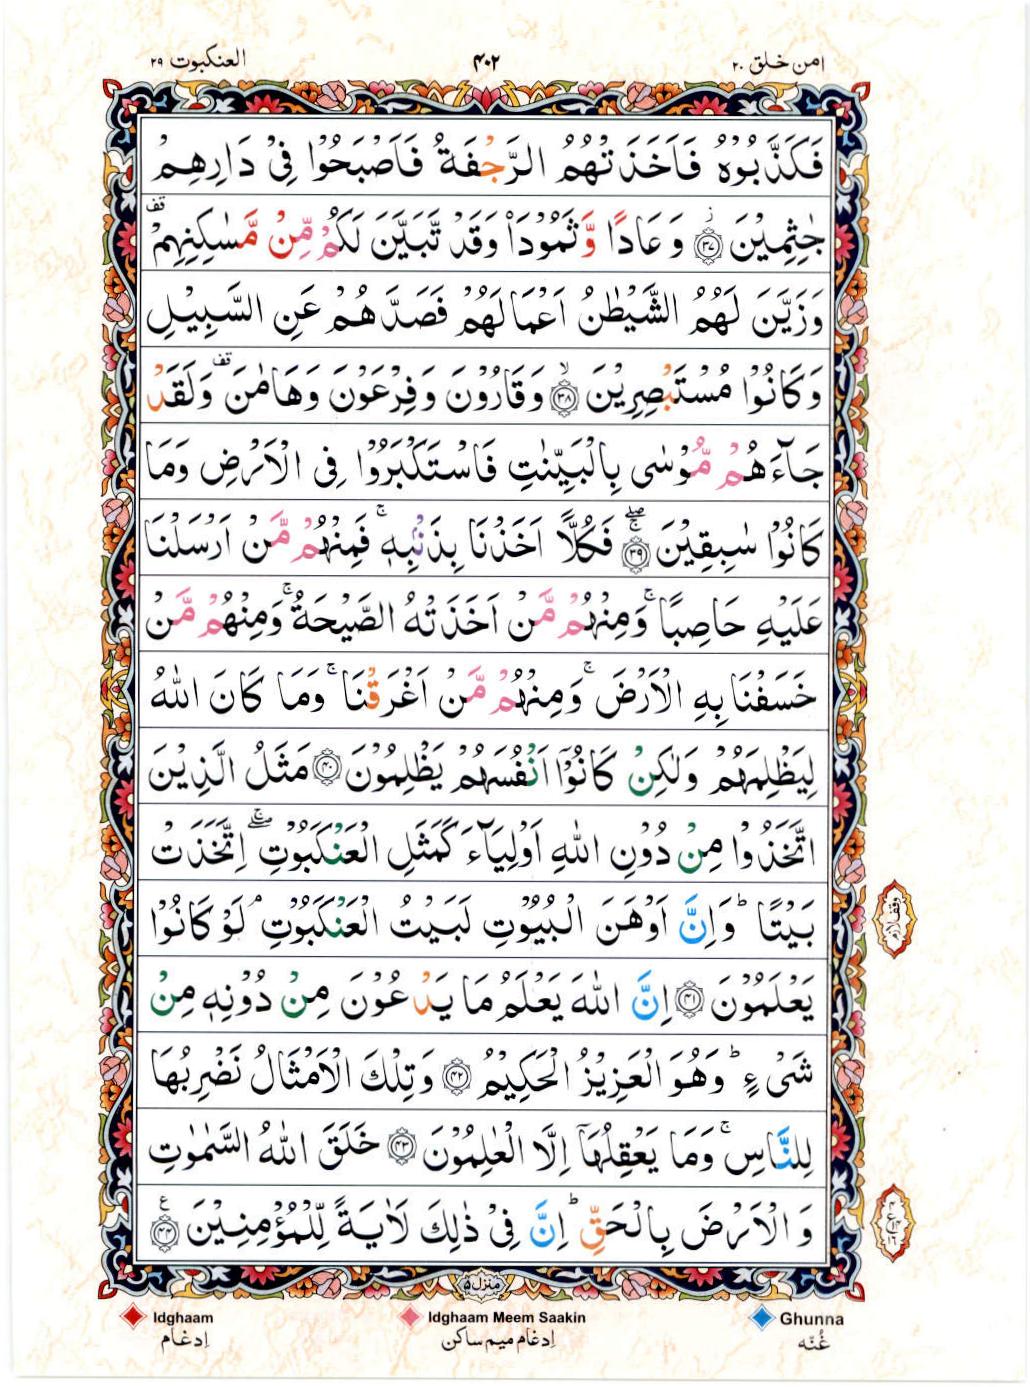 امن خلق ٢٠ ۴٠٢ العنكبوت ٢٩
فَكَذَّبُوْهُ فَاَخَذَتْهُمُ الرَّجْفَةُ فَاَصْبَحُوْا فِىْ دَارِهِمْ
جٰثِمِيْنَ ۟ؗ ﴿٣٧﴾ وَعَادًا وَّثَمُوْدَا۟ وَقَدْ تَّبَيَّنَ لَكُمْ مِّنْ مَّسٰكِنِهِمْ ۣقف
وَزَيَّنَ لَهُمُ الشَّيْطٰنُ اَعْمَالَهُمْ فَصَدَّهُمْ عَنِ السَّبِيْلِ
وَكَانُوْا مُسْتَبْصِرِيْنَ ۙ﴿٣٨﴾ وَقَارُوْنَ وَفِرْعَوْنَ وَهَامٰنَ قف وَلَقَدْ
جَآءَهُمْ مُّوْسٰى بِالْبَيِّنٰتِ فَاسْتَكْبَرُوْا فِى الْاَرْضِ وَمَا
كَانُوْا سٰبِقِيْنَ ۖۚ﴿٣٩﴾ فَكُلًّا اَخَذْنَا بِذَنْۢبِهٖ ۚ فَمِنْهُمْ مَّنْ اَرْسَلْنَا
عَلَيْهِ حَاصِبًا ۚ وَمِنْهُمْ مَّنْ اَخَذَتْهُ الصَّيْحَةُ ۚ وَمِنْهُمْ مَّنْ
خَسَفْنَا بِهِ الْاَرْضَ ۚ وَمِنْهُمْ مَّنْ اَغْرَقْنَا ۚ وَمَا كَانَ اللّٰهُ
لِيَظْلِمَهُمْ وَلٰكِنْ كَانُوْۤا اَنْفُسَهُمْ يَظْلِمُوْنَ ﴿۴٠﴾ مَثَلُ الَّذِيْنَ
اتَّخَذُوْا مِنْ دُوْنِ اللّٰهِ اَوْلِيَآءَ كَمَثَلِ الْعَنْكَبُوْتِ ۖۚ اِتَّخَذَتْ
بَيْتًا ؕ وَاِنَّ اَوْهَنَ الْبُيُوْتِ لَبَيْتُ الْعَنْكَبُوْتِ ۘ لَوْ كَانُوْا
وقف لازم
يَعْلَمُوْنَ ﴿۴١﴾ اِنَّ اللّٰهَ يَعْلَمُ مَا يَدْعُوْنَ مِنْ دُوْنِهٖ مِنْ
شَىْءٍ ؕ وَهُوَ الْعَزِيْزُ الْحَكِيْمُ ﴿۴٢﴾ وَتِلْكَ الْاَمْثَالُ نَضْرِبُهَا
لِلنَّاسِ ۚ وَمَا يَعْقِلُهَاۤ اِلَّا الْعٰلِمُوْنَ ﴿۴٣﴾ خَلَقَ اللّٰهُ السَّمٰوٰتِ
وَالْاَرْضَ بِالْحَقِّ ؕ اِنَّ فِىْ ذٰلِكَ لَاٰيَةً لِّلْمُؤْمِنِيْنَ ﴿۴۴﴾ ع
منزل ۵
Idghaam Idghaam Meem Saakin Ghunna
إدغام إدغام میم ساكن غُنّه